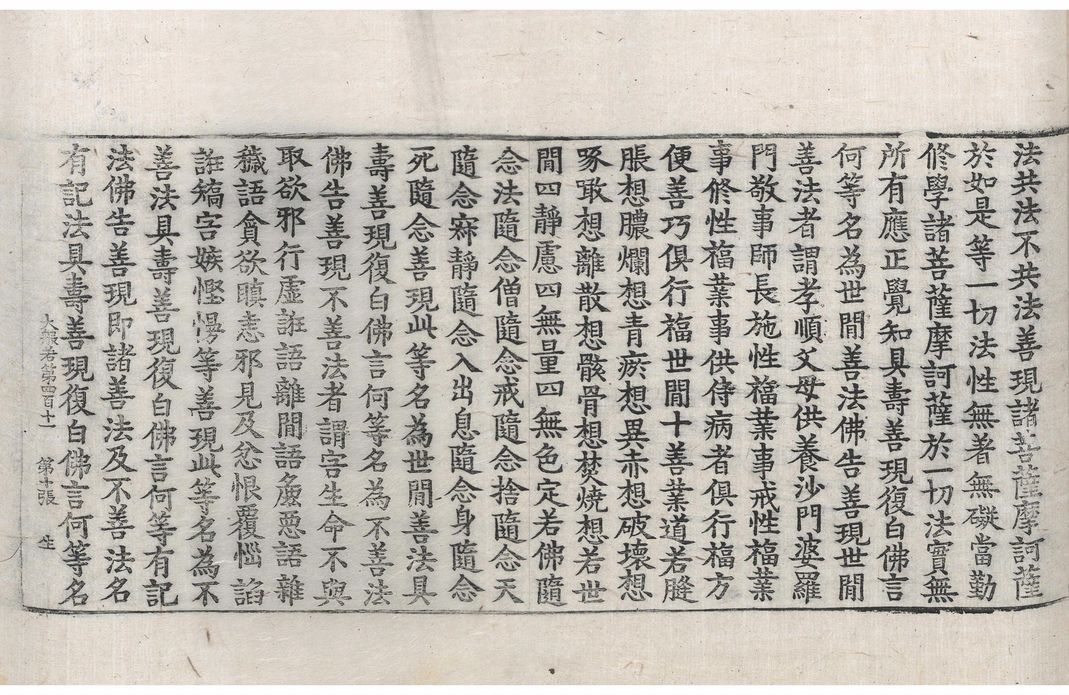 法共法不共法善現諸菩薩摩訶薩
於如是等一切法性無著無礙當勤
修學諸菩薩摩訶薩於一切法實無
所有應正覺知具壽善現復白佛言
何等名為世閒善法佛告善現世閒
善法者謂孝順父母供養沙門婆羅
門敬事師長施性福業事戒性福業
事修性福業事供侍病者俱行福方
便善巧俱行福世閒十善業道若膖
脹想膿爛想青瘀想異赤想破壞想
啄噉想離散想骸骨想焚燒想若世
閒四靜慮四無量四無色定若佛隨
念法隨念僧隨念戒隨念捨隨念天
隨念寂靜隨念入出息隨念身隨念
死隨念善現此等名為世閒善法具
壽善現復白佛言何等名為不善法
佛告善現不善法者謂害生命不與
取欲邪行虛誑語離閒語麁惡語雜
穢語貪欲瞋恚邪見及忿恨覆惱諂
誑矯害嫉慳慢等善現此等名為不
善法具壽善現復白佛言何等有記
法佛告善現即諸善法及不善法名
有記法具壽善現復白佛言何等名
大般若第四百十一　第十張　生